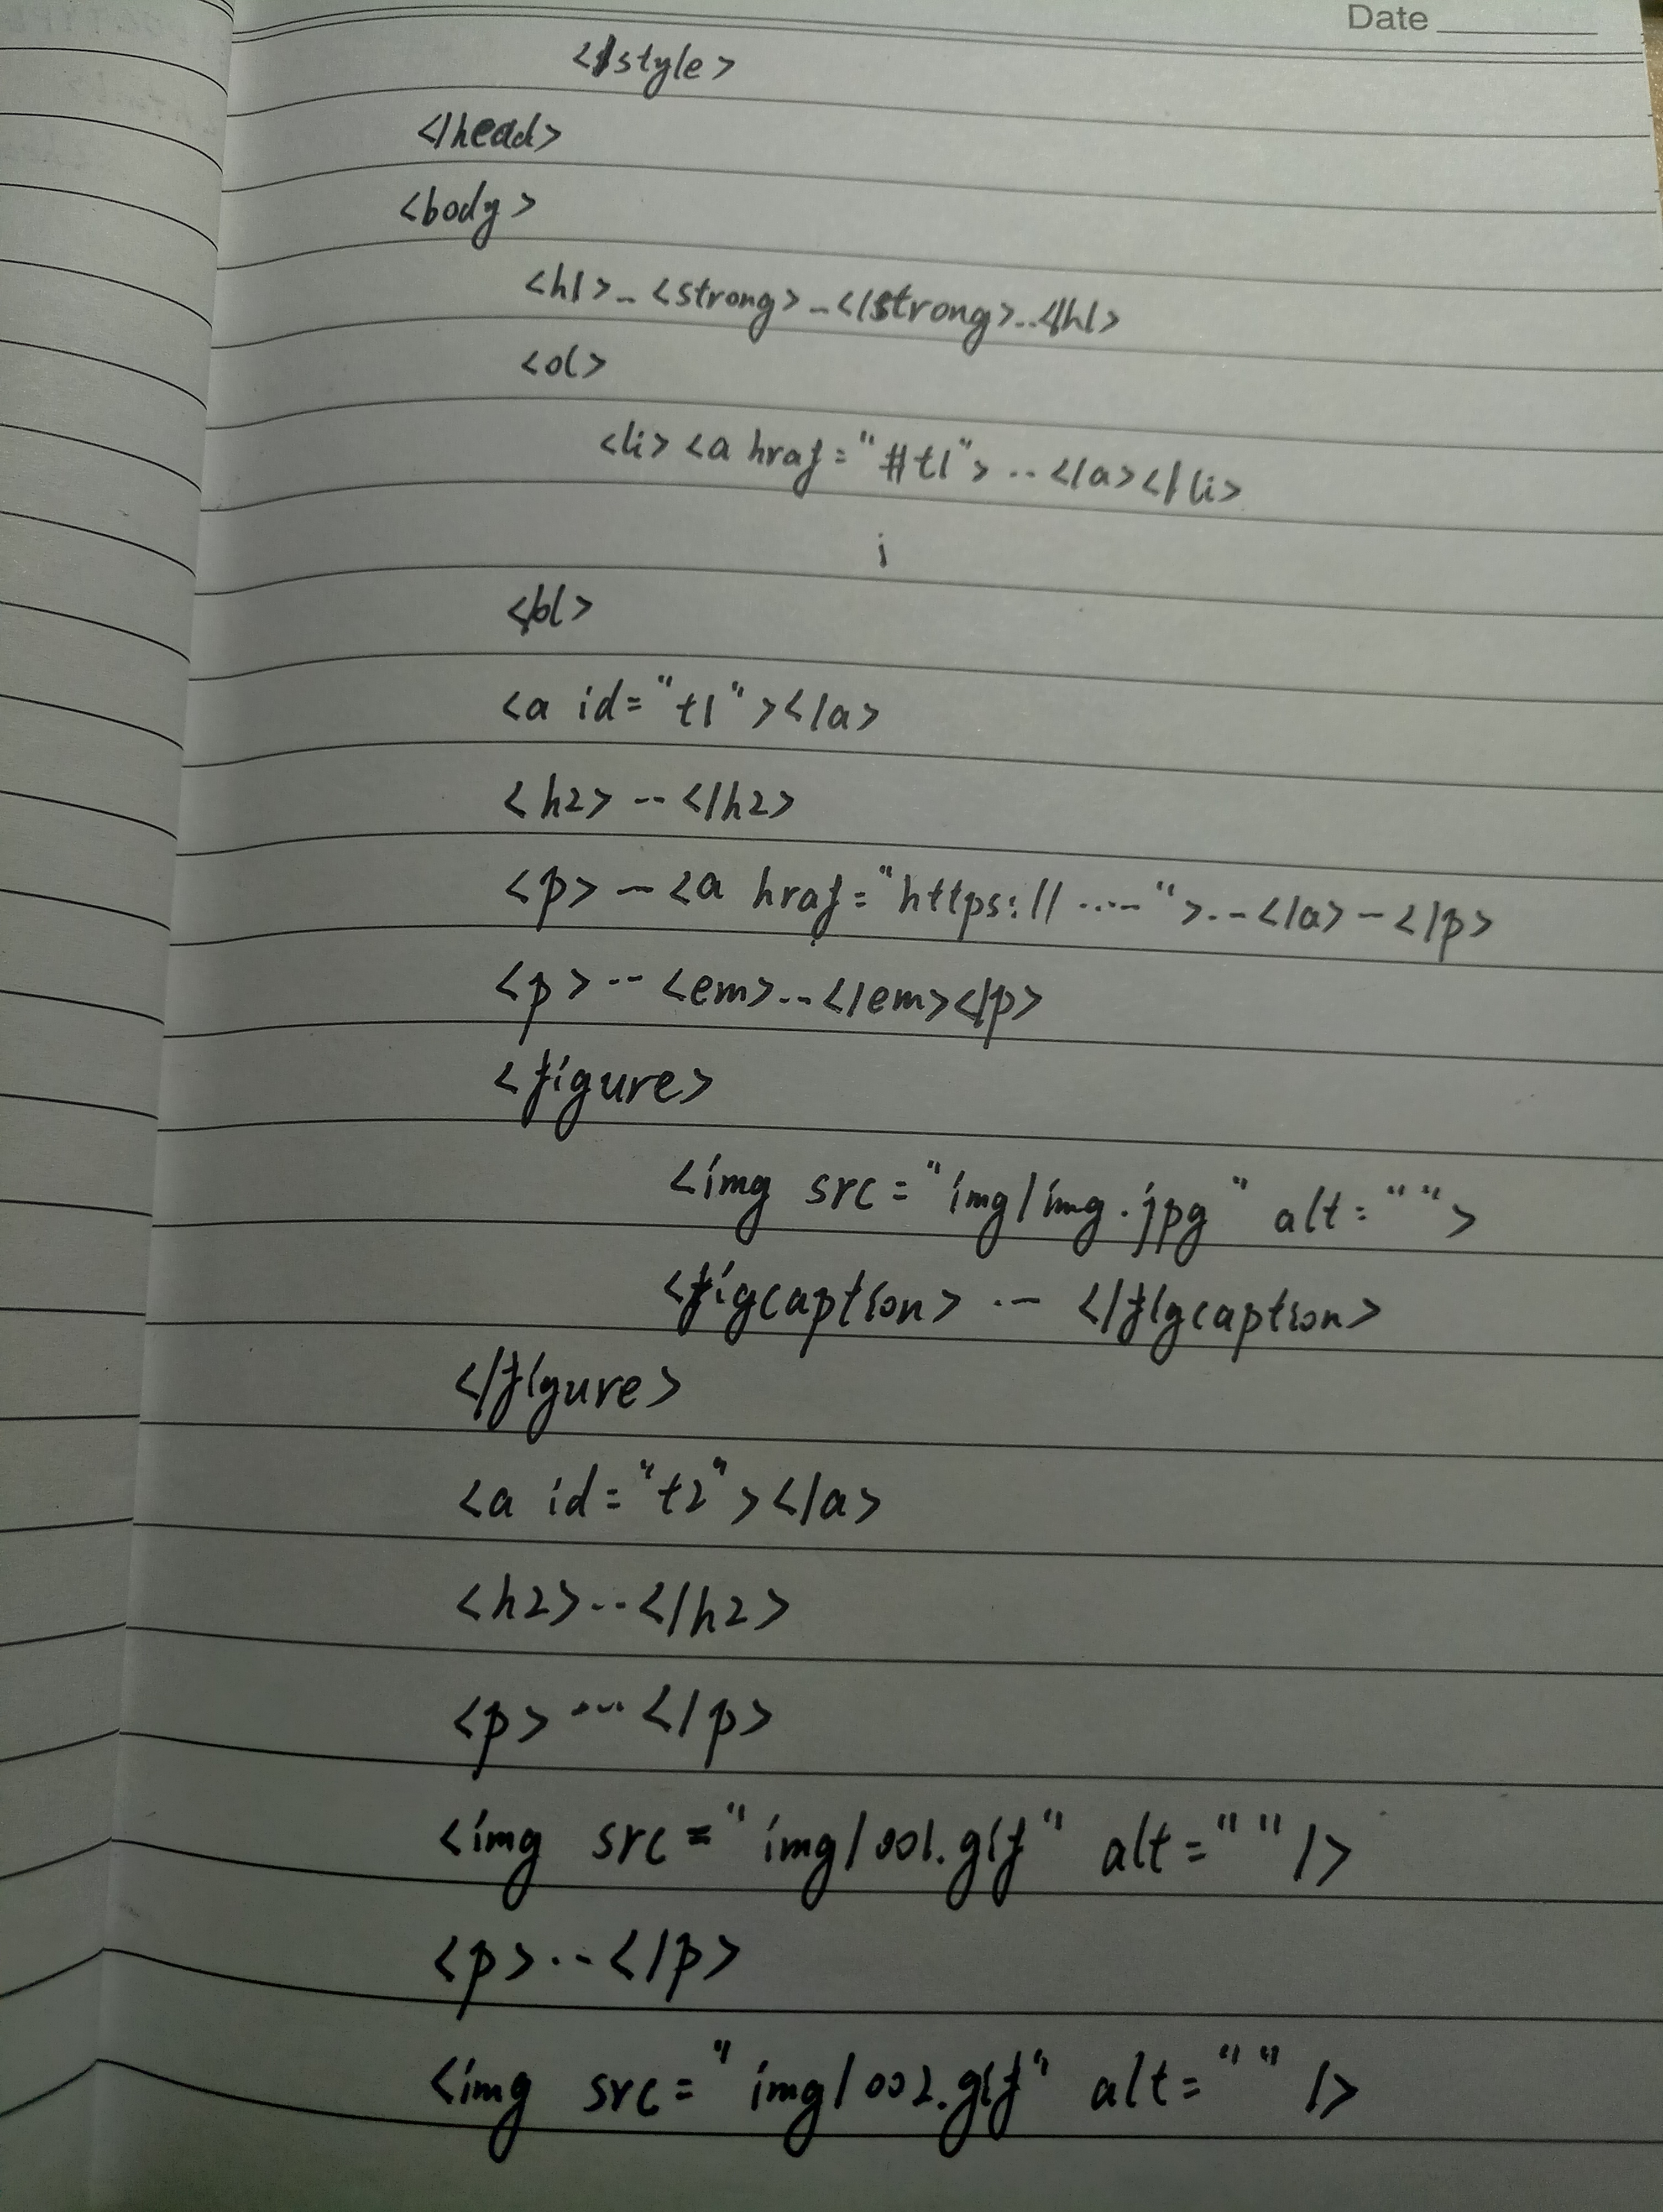 Date
</style>
</head>
<body>
<h1>..<strong>..</strong>..</h1>
<ol>
<li><a hraf="#t1">..</a></li>
⋮
</ol>
<a id="t1"></a>
<h2>..</h2>
<p>..<a hraf="https://....">..</a>..</p>
<p>..<em>..</em></p>
<figure>
<img src="img/img.jpg" alt="">
<figcaption>..</figcaption>
</figure>
<a id="t2"></a>
<h2>..</h2>
<p>...</p>
<img src="img/001.gif" alt=""/>
<p>..</p>
<img src="img/002.gif" alt=""/>